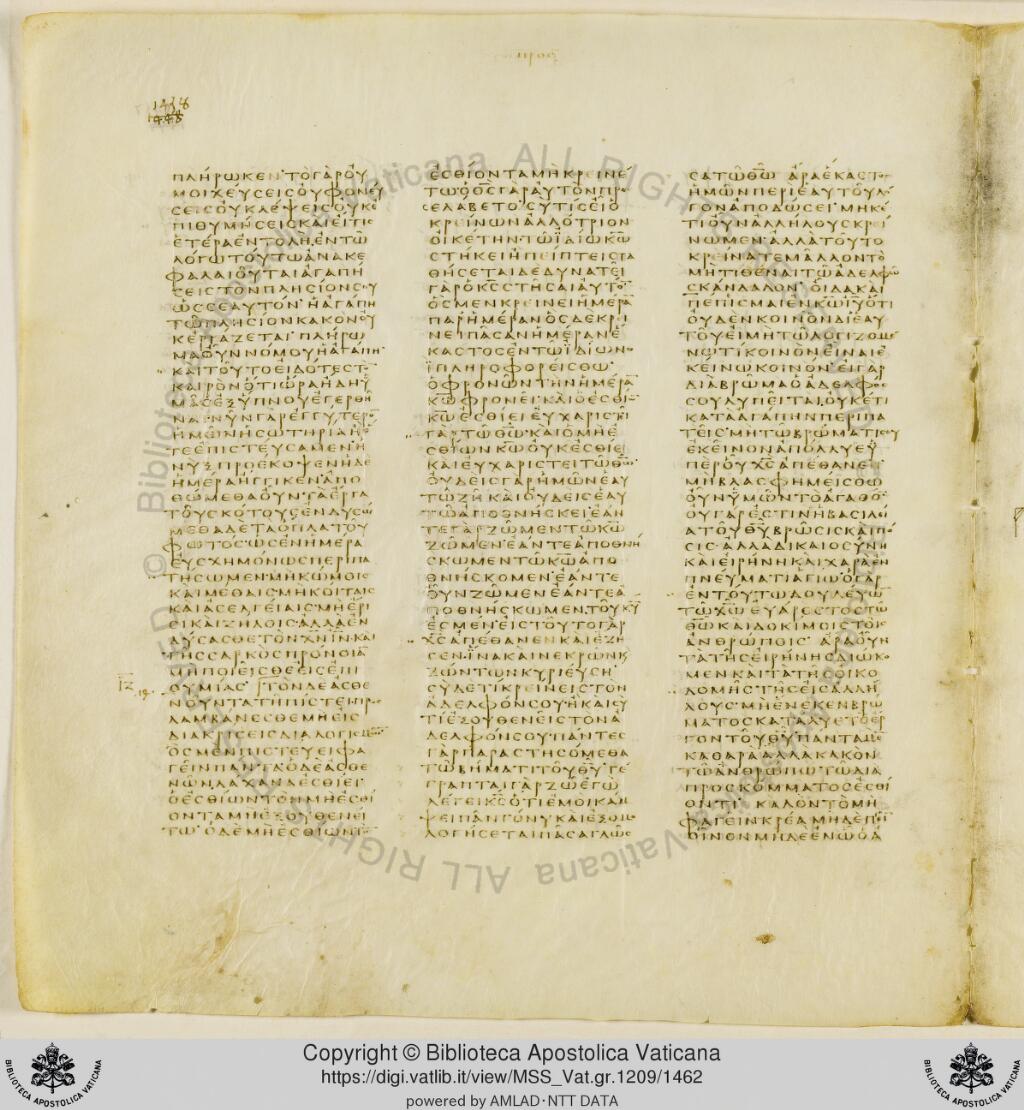 ΠΛΗΡΩΚΕΝΤΟΓΑΡΟΥ
ΜΟΙΧΕΥϹΕΙϹΟΥΦΟΝΕΥ
ϹΕΙϹΟΥΚΛΕΨΕΙϹΟΥΚΕ
ΠΙΘΥΜΗϹΕΙϹΚΑΙΕΙΤΙϹ
ΕΤΕΡΑΕΝΤΟΛΗΕΝΤΩ
ΛΟΓΩΤΟΥΤΩΑΝΑΚΕ
ΦΑΛΑΙΟΥΤΑΙΑΓΑΠΗ
ϹΕΙϹΤΟΝΠΛΗϹΙΟΝϹΟΥ
ΩϹϹΕΑΥΤΟΝΗΑΓΑΠΗ
ΤΩΠΛΗϹΙΟΝΚΑΚΟΝΟΥ
ΚΕΡΓΑΖΕΤΑΙΠΛΗΡΩ
ΜΑΟΥΝΝΟΜΟΥΗΑΓΑΠΗ
ΚΑΙΤΟΥΤΟΕΙΔΟΤΕϹΤΟ
ΚΑΙΡΟΝΟΤΙΩΡΑΗΔΗΥ
ΜΑϹΕΞΥΠΝΟΥΕΓΕΡΘΗ
ΝΑΙΝΥΝΓΑΡΕΓΓΥΤΕΡΟ
ΗΜΩΝΗϹΩΤΗΡΙΑΗΟ
ΤΕΕΠΙϹΤΕΥϹΑΜΕΝΗ
ΝΥΞΠΡΟΕΚΟΨΕΝΗΔΕ
ΗΜΕΡΑΗΓΓΙΚΕΝΑΠΟ
ΘΩΜΕΘΑΟΥΝΤΑΕΡΓΑ
ΤΟΥϹΚΟΤΟΥϹΕΝΔΥϹΩ
ΜΕΘΑΔΕΤΑΟΠΛΑΤΟΥ
ΦΩΤΟϹΩϹΕΝΗΜΕΡΑ
ΕΥϹΧΗΜΟΝΩϹΠΕΡΙΠΑ
ΤΗϹΩΜΕΝΜΗΚΩΜΟΙϹ
ΚΑΙΜΕΘΑΙϹΜΗΚΟΙΤΑΙϹ
ΚΑΙΑϹΕΛΓΕΙΑΙϹΜΗΕΡΙ
ϹΙΚΑΙΖΗΛΟΙϹΑΛΛΑΕΝ
ΔΥϹΑϹΘΕΤΟΝΧΝΙΝΚΑΙ
ΤΗϹϹΑΡΚΟϹΠΡΟΝΟΙΑ
ΜΗΠΟΙΕΙϹΘΕΕΙϹΕΠΙ
ΘΥΜΙΑϹ ΤΟΝΔΕΑϹΘΕ
ΝΟΥΝΤΑΤΗΠΙϹΤΕΙΠΡΟ
ΛΑΜΒΑΝΕϹΘΕΜΗΕΙϹ
ΔΙΑΚΡΙϹΕΙϹΔΙΑΛΟΓΙϹΜΩ
ΟϹΜΕΝΠΙϹΤΕΥΕΙΦΑ
ΓΕΙΝΠΑΝΤΑΟΔΕΑϹΘΕ
ΝΩΝΛΑΧΑΝΑΕϹΘΙΕΙ
ΟΕϹΘΙΩΝΤΟΝΜΗΕϹΘΙ
ΟΝΤΑΜΗΕΞΟΥΘΕΝΕΙ
ΤΩΟΔΕΜΗΕϹΘΙΩΝΤΟ
ΕϹΘΙΟΝΤΑΜΗΚΡΕΙΝΕ
ΤΩΟΘϹΓΑΡΑΥΤΟΝΠΡΟ
ϹΕΛΑΒΕΤΟϹΥΤΙϹΕΙΟ
ΚΡΕΙΝΩΝΑΛΛΟΤΡΙΟΝ
ΟΙΚΕΤΗΝΤΩΙΔΙΩΚΩ
ϹΤΗΚΕΙΗΠΕΙΠΤΕΙϹΤΑ
ΘΗϹΕΤΑΙΔΕΔΥΝΑΤΕΙ
ΓΑΡΟΚϹϹΤΗϹΑΙΑΥΤΟ
ΟϹΜΕΝΚΡΕΙΝΕΙΗΜΕΡΑ
ΠΑΡΗΜΕΡΑΝΟϹΔΕΚΡΕΙ
ΝΕΙΠΑϹΑΝΗΜΕΡΑΝΕ
ΚΑϹΤΟϹΕΝΤΩΙΔΙΩΝΟ
ΙΠΛΗΡΟΦΟΡΕΙϹΘΩ
ΟΦΡΟΝΩΝΤΗΝΗΜΕΡΑ
ΚΩΦΡΟΝΕΙΚΑΙΟΕϹΘΙΩ
ΚΩΕϹΘΙΕΙΕΥΧΑΡΙϹΤΕΙ
ΓΑΡΤΩΘΩΚΑΙΟΜΗΕ
ϹΘΙΩΝΚΩΟΥΚΕϹΘΙΕΙ
ΚΑΙΕΥΧΑΡΙϹΤΕΙΤΩΘΩ
ΟΥΔΕΙϹΓΑΡΗΜΩΝΕΑΥ
ΤΩΖΗΚΑΙΟΥΔΕΙϹΕΑΥ
ΤΩΑΠΟΘΝΗϹΚΕΙΕΑΝ
ΤΕΓΑΡΖΩΜΕΝΤΩΚΩ
ΖΩΜΕΝΕΑΝΤΕΑΠΟΘΝΗ
ϹΚΩΜΕΝΤΩΚΩΑΠΟ
ΘΝΗϹΚΟΜΕΝΕΑΝΤΕ
ΟΥΝΖΩΜΕΝΕΑΝΤΕΑ
ΠΟΘΝΗϹΚΩΜΕΝΤΟΥΚΥ
ΕϹΜΕΝΕΙϹΤΟΥΤΟΓΑΡ
ΧϹΑΠΕΘΑΝΕΝΚΑΙΕΖΗ
ϹΕΝΙΝΑΚΑΙΝΕΚΡΩΝΚ
ΖΩΝΤΩΝΚΥΡΙΕΥϹΗ
ϹΥΔΕΤΙΚΡΕΙΝΕΙϹΤΟΝ
ΑΔΕΛΦΟΝϹΟΥΗΚΑΙϹΥ
ΤΙΕΞΟΥΘΕΝΕΙϹΤΟΝΑ
ΔΕΛΦΟΝϹΟΥΠΑΝΤΕϹ
ΓΑΡΠΑΡΑϹΤΗϹΟΜΕΘΑ
ΤΩΒΗΜΑΤΙΤΟΥΘΥΓΕ
ΓΡΑΠΤΑΙΓΑΡΖΩΕΓΩ
ΛΕΓΕΙΚϹΟΤΙΕΜΟΙΚΑΜ
ΨΕΙΠΑΝΓΟΝΥΚΑΙΕΞΟΜΟ
ΛΟΓΗϹΕΤΑΙΠΑϹΑΓΛΩϹ
ϹΑΤΩΘΩ ΑΡΑΕΚΑϹΤΟ
ΗΜΩΝΠΕΡΙΕΑΥΤΟΥΛΟ
ΓΟΝΑΠΟΔΩϹΕΙΜΗΚΕ
ΤΙΟΥΝΑΛΛΗΛΟΥϹΚΡΕΙ
ΝΩΜΕΝΑΛΛΑΤΟΥΤΟ
ΚΡΕΙΝΑΤΕΜΑΛΛΟΝΤΟ
ΜΗΤΙΘΕΝΑΙΤΩΑΔΕΛΦΩ
ϹΚΑΝΔΑΛΟΝΟΙΔΑΚΑΙ
ΠΕΠΙϹΜΑΙΕΝΚΩΙΥΟΤΙ
ΟΥΔΕΝΚΟΙΝΟΝΔΙΕΑΥ
ΤΟΥΕΙΜΗΤΩΛΟΓΙΖΟΜΕ
ΝΩΤΙΚΟΙΝΟΝΕΙΝΑΙΕ
ΚΕΙΝΩΚΟΙΝΟΝΕΙΓΑΡ
ΔΙΑΒΡΩΜΑΟΑΔΕΛΦΟϹ
ϹΟΥΛΥΠΕΙΤΑΙΟΥΚΕΤΙ
ΚΑΤΑΑΓΑΠΗΝΠΕΡΙΠΑ
ΤΕΙϹΜΗΤΩΒΡΩΜΑΤΙϹΟΥ
ΕΚΕΙΝΟΝΑΠΟΛΛΥΕΥ
ΠΕΡΟΥΧϹΑΠΕΘΑΝΕΝ
ΜΗΒΛΑϹΦΗΜΕΙϹΘΩ
ΟΥΝΥΜΩΝΤΟΑΓΑΘΟ
ΟΥΓΑΡΕϹΤΙΝΗΒΑϹΙΛΕΙ
ΑΤΟΥΘΥΒΡΩϹΙϹΚΑΙΠΟ
ϹΙϹΑΛΛΑΔΙΚΑΙΟϹΥΝΗ
ΚΑΙΕΙΡΗΝΗΚΑΙΧΑΡΑΕΝ
ΠΝΕΥΜΑΤΙΑΓΙΩΟΓΑΡ
ΕΝΤΟΥΤΩΔΟΥΛΕΥΩ
ΤΩΧΩΕΥΑΡΕϹΤΟϹΤΩ
ΘΩΚΑΙΔΟΚΙΜΟΙϹΤΟΙϹ
ΑΝΘΡΩΠΟΙϹΑΡΑΟΥΝ
ΤΑΤΗϹΕΙΡΗΝΗϹΔΙΩΚΟ
ΜΕΝΚΑΙΤΑΤΗϹΟΙΚΟ
ΔΟΜΗϹΤΗϹΕΙϹΑΛΛΗ
ΛΟΥϹΜΗΕΝΕΚΕΝΒΡΩ
ΜΑΤΟϹΚΑΤΑΛΥΕΤΟΕΡ
ΓΟΝΤΟΥΘΥΠΑΝΤΑΜΕ
ΚΑΘΑΡΑΑΛΛΑΚΑΚΟΝ
ΤΩΑΝΘΡΩΠΩΤΩΔΙΑ
ΠΡΟϹΚΟΜΜΑΤΟϹΕϹΘΙ
ΟΝΤΙ ΚΑΛΟΝΤΟΜΗ
ΦΑΓΕΙΝΚΡΕΑΜΗΔΕΠΕΙ
ΟΙΝΟΝΜΗΔΕΕΝΩΟΑ
Copyright © Biblioteca Apostolica Vaticana
https://digi.vatlib.it/view/MSS_Vat.gr.1209/1462
powered by AMLAD·NTT DATA